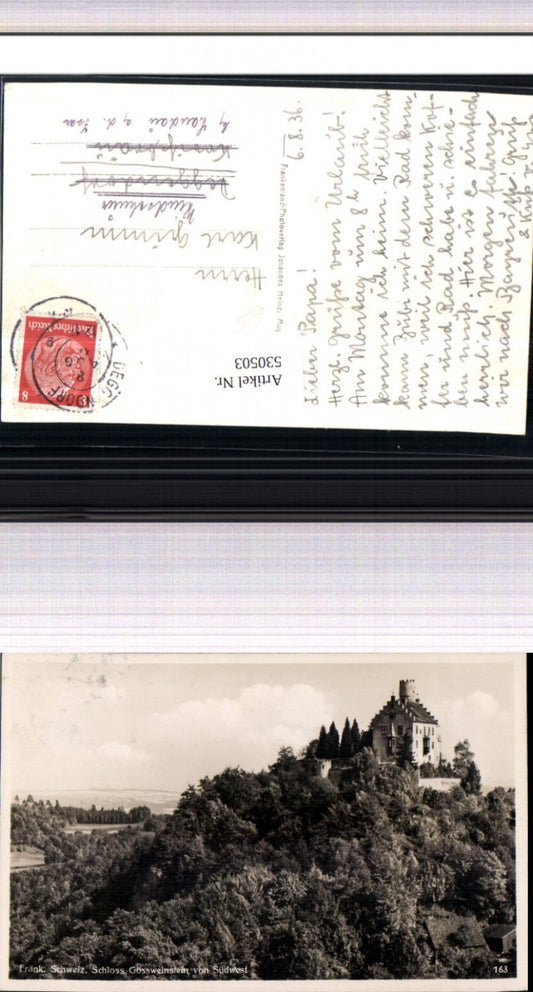 6.8.36.
Lieber Papa!
Herzl. Grüße vom Urlaub!
Am Montag um 8 h früh
komme ich heim. Vielleicht
kann Zübi mit dem Rad kom-
men, weil ich schweren Kof-
fer und Rad habe u. schie-
ben muß. Hier ist es einfach
herrlich. Morgen fahren
wir nach Bayreuth. Gruß
& Kuß
Frankenland-Photoverlag Johannes
Artikel Nr.
530503
Herrn
Karl Grimm
Deggendorf
b/ Landau a. d. Isar
Deutsches Reich
8
DEGGENDORF
Fränk. Schweiz. Schloss Gössweinstein von Südwest
163